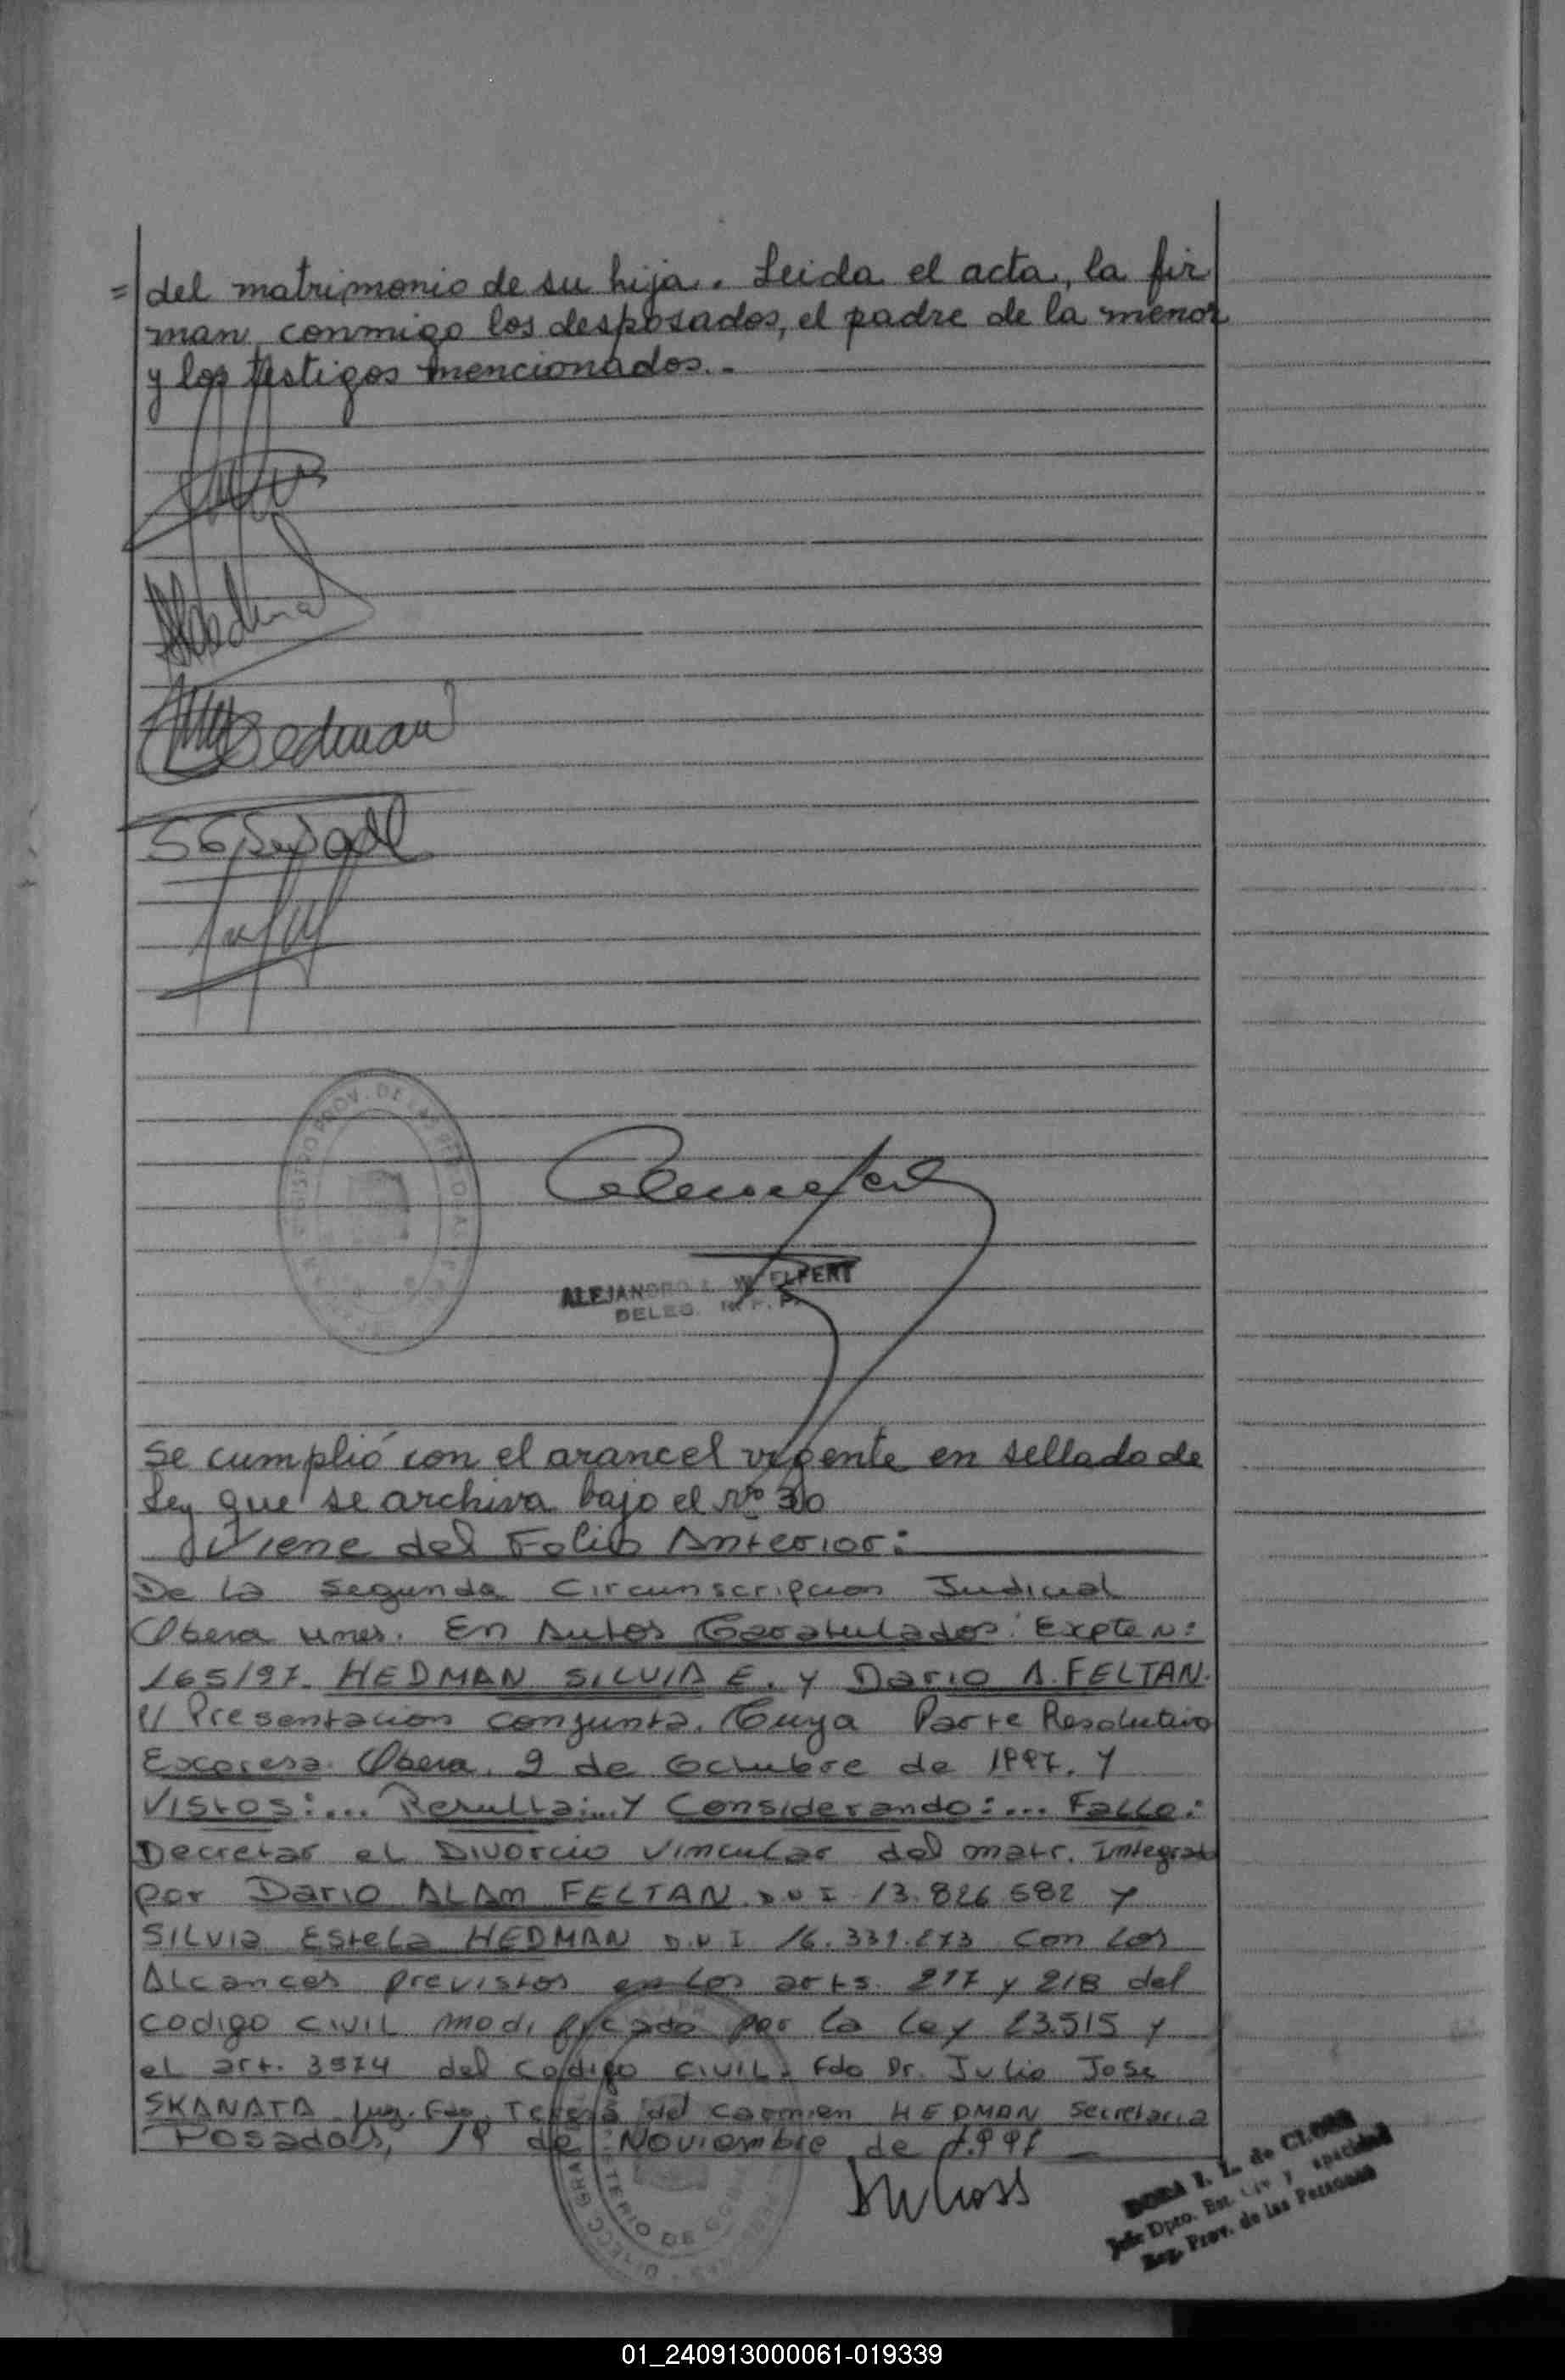 = del matrimonio de su hija. Leida el acta, la fir
man, conmigo los desposados, el padre de la menor
y los testigos mencionados.-
Hedman
ALEJANDRO
DELEG. R. P. P.
Se cumplió con el arancel vigente en sellado de
Ley que se archiva bajo el Nº 30
Viene del Folio Anterior:
De la Segunda Circunscripcion Judicial
Obera Mnes. En Autos Caratulados: Expte N:
165/97. HEDMAN SILVIA E. y Dario A. FELTAN.
s/ Presentacion conjunta. Cuya Parte Resolutiva
Expresa. Obera, 9 de Octubre de 1997. Y
VISTOS:... Resulta:...Y Considerando:... Fallo:
Decretar el Divorcio Vincular del matr. Integrado
por Dario ALAM FELTAN. D.N.I 13.826.582 y
SILVIA Estela HEDMAN D.N.I 16.331.273 con los
Alcances previstos en los arts. 217 y 218 del
codigo civil modificado por la Ley 23.515 y
el art. 3574 del codigo civil. Fdo Dr. Julio Jose
SKANATA Juez. Fdo. Teresa del Carmen HEDMAN Secretaria
Posadas, 19 de Noviembre de 1.997
DORA I. L. de CLOSS
Jefe Dpto. Est. Civ y Capacidad
Reg. Prov. de las Personas
01_240913000061-019339